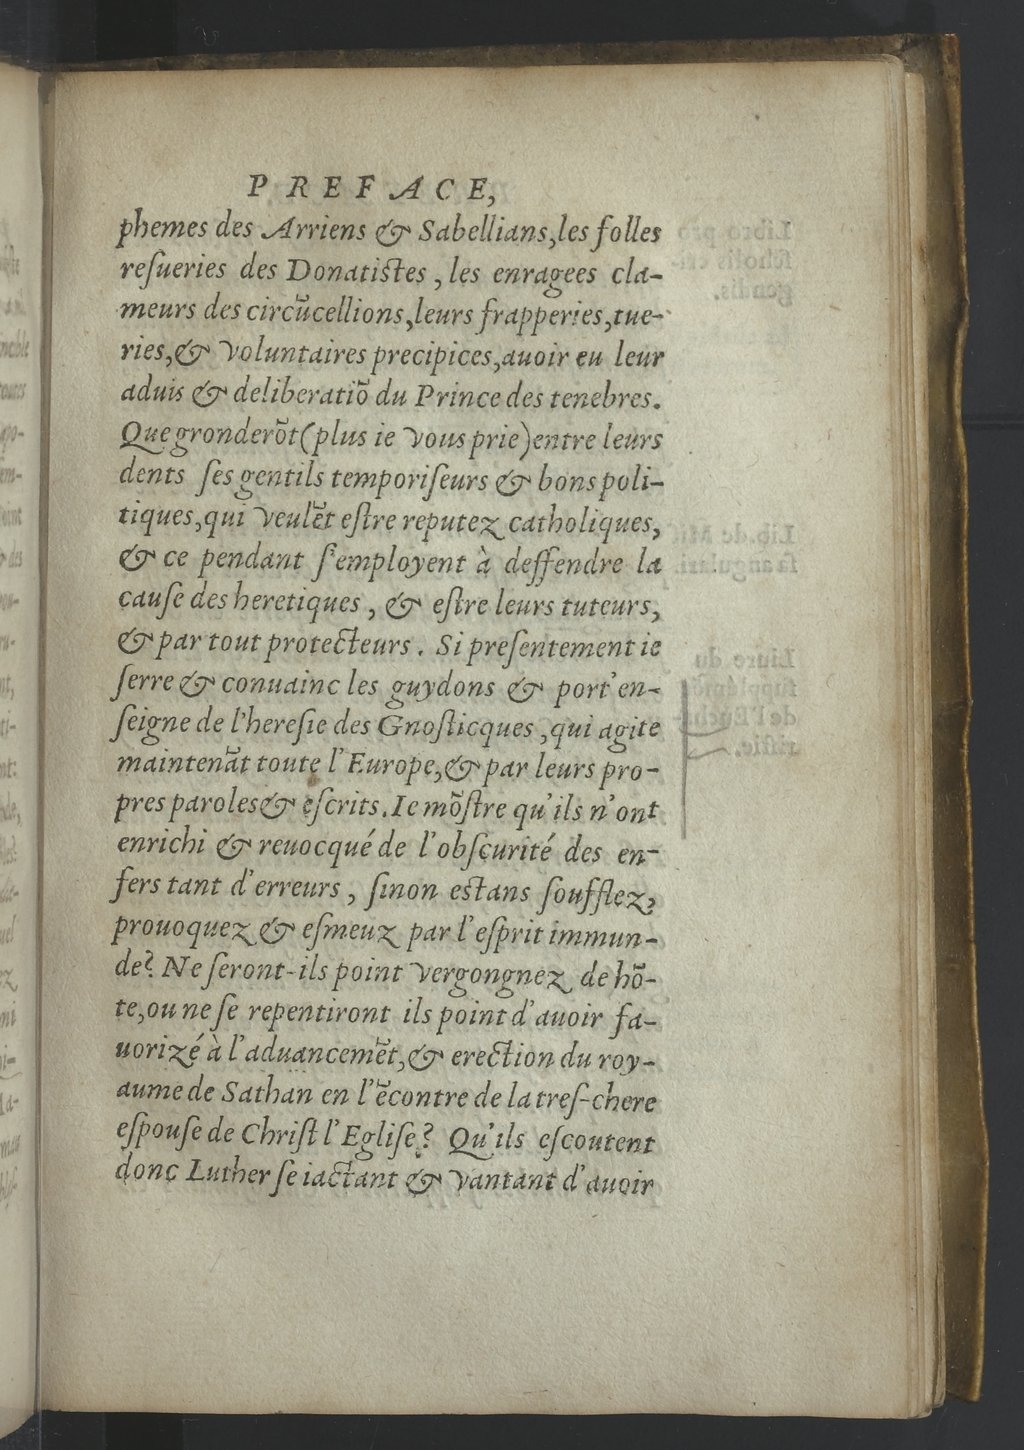 PREFACE,
phemes des Arriens & Sabellians, les folles
reſueries des Donatistes, les enragees cla-
meurs des circūcellions, leurs frapperies, tue-
ries, & voluntaires precipices, auoir eu leur
aduis & deliberatiō du Prince des tenebres.
Que gronderōt (plus ie vous prie) entre leurs
dents ſes gentils temporiſeurs & bons poli-
tiques, qui veulēt eſtre reputez catholiques,
& ce pendant ſ'employent à deffendre la
cauſe des heretiques, & eſtre leurs tuteurs,
& par tout protecteurs. Si preſentement ie
ſerre & conuainc les guydons & port'en-
ſeigne de l'hereſie des Gnoſticques, qui agite
maintenāt toute l'Europe, & par leurs pro-
pres paroles & eſcrits. Ie mōſtre qu'ils n'ont
enrichi & reuocqué de l'obſcurité des en-
fers tant d'erreurs, ſinon estans ſoufflez,
prouoquez & eſmeuz par l'eſprit immun-
de? Ne ſeront-ils point vergongnez de hō-
te, ou ne ſe repentiront ils point d'auoir fa-
uorizé à l'aduancemēt, & erection du roy-
aume de Sathan en l'ēcontre de la treſ-chere
eſpouſe de Chriſt l'Egliſe? Qu'ils eſcoutent
donc Luther ſe iactant & vantant d'auoir